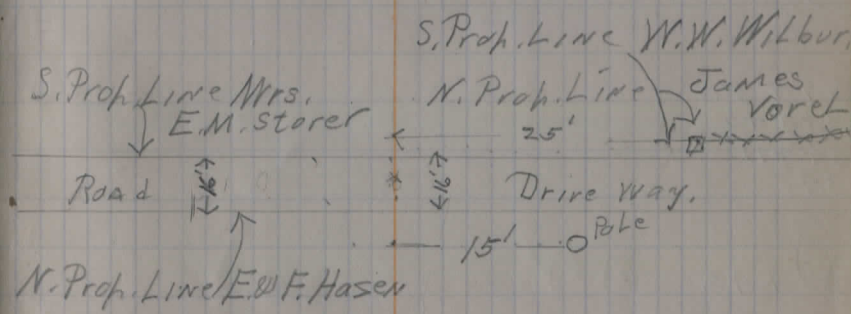 S. Prop. Line W.W. Wilbur.
S. Prop. Line Mrs.
E.M. Storer
N. Prop. Line James
Vorel
25'
Road
16'
16'
Drive way.
15'
Pole
N. Prop. Line E & F. Hasen